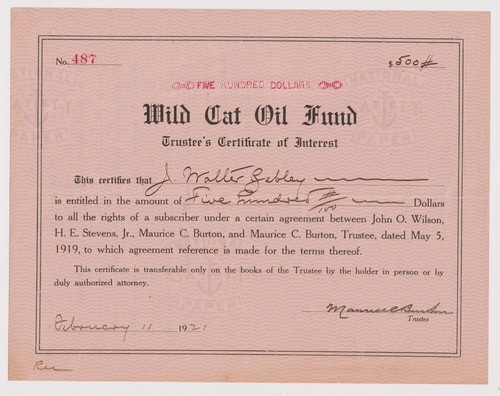 No. 487
$500#
FIVE HUNDRED DOLLARS
Wild Cat Oil Fund
Trustee's Certificate of Interest
This certifies that J. Walter
is entitled in the amount of Five hundred #/100 Dollars
to all the rights of a subscriber under a certain agreement between John O. Wilson,
H. E. Stevens, Jr., Maurice C. Burton, and Maurice C. Burton, Trustee, dated May 5,
1919, to which agreement reference is made for the terms thereof.
This certificate is transferable only on the books of the Trustee by the holder in person or by
duly authorized attorney.
Maurice C Burton
Trustee
February 11 1921
NATIONAL
SAFETY
PAPER